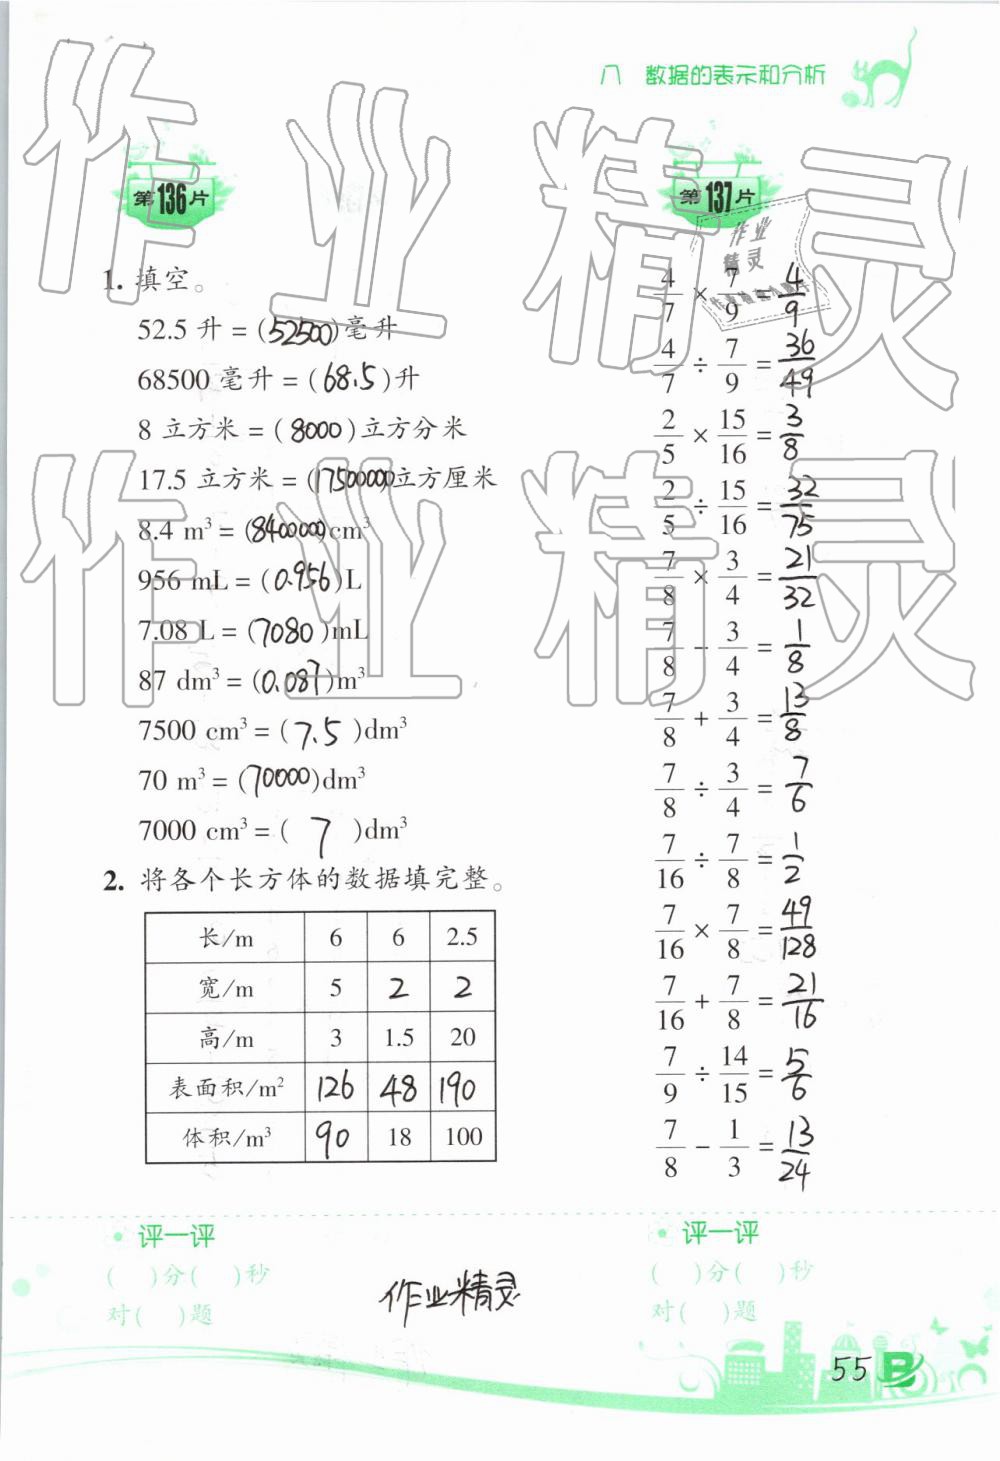 八 数据的表示和分析
第136片
1. 填空。
52.5 升 = (52500)毫升
68500 毫升 = (68.5)升
8 立方米 = (8000)立方分米
17.5 立方米 = (17500000)立方厘米
8.4 m³ = (8400000)cm³
956 mL = (0.956)L
7.08 L = (7080)mL
87 dm³ = (0.087)m³
7500 cm³ = (7.5)dm³
70 m³ = (70000)dm³
7000 cm³ = (7)dm³
2. 将各个长方体的数据填完整。
长/m 6 6 2.5
宽/m 5 2 2
高/m 3 1.5 20
表面积/m² 126 48 190
体积/m³ 90 18 100
评一评
( )分( )秒
对( )题
第137片
4/7 × 7/9 = 4/9
4/7 ÷ 7/9 = 36/49
2/5 × 15/16 = 3/8
2/5 ÷ 15/16 = 32/75
7/8 × 3/4 = 21/32
7/8 - 3/4 = 1/8
7/8 + 3/4 = 13/8
7/8 ÷ 3/4 = 7/6
7/16 ÷ 7/8 = 1/2
7/16 × 7/8 = 49/128
7/16 + 7/8 = 21/16
7/9 ÷ 14/15 = 5/6
7/8 - 1/3 = 13/24
评一评
( )分( )秒
对( )题
作业精灵
55 B
作业精灵
作业精灵
作业
精灵